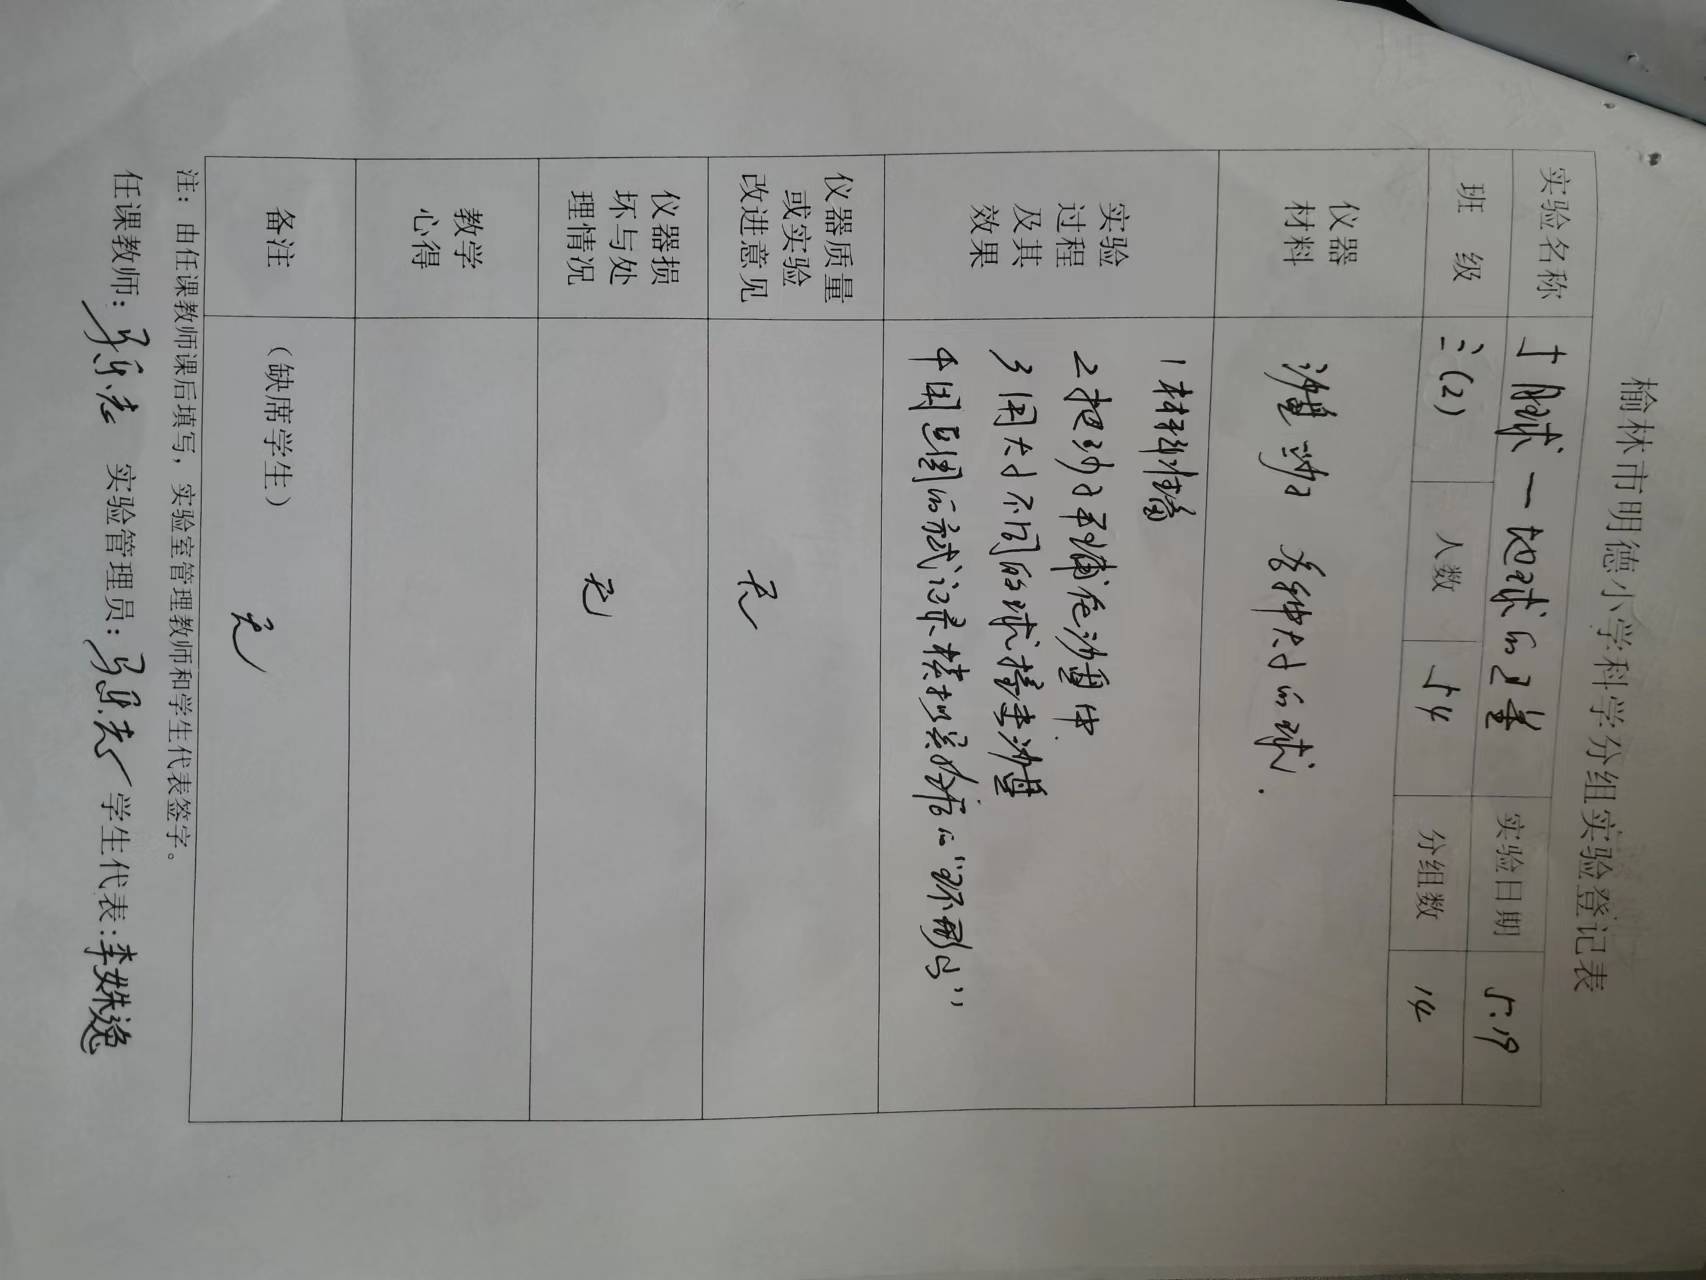 榆林市明德小学科学分组实验登记表
实验名称 月球—地球的卫星 实验日期 5.19
班级 三(2) 人数 54 分组数 14
仪器材料 沙盘 沙子 多种大小的球.
实验过程及其效果 1材料准备
2把沙子平铺在沙盘中
3用大小不同的球撞击沙盘
4用画图的方式记录模拟实验后的“环形山”
仪器质量或实验改进意见 无
仪器损坏与处理情况 无
教学心得
备注 (缺席学生) 无
注：由任课教师课后填写，实验室管理教师和学生代表签字。
任课教师： 实验管理员： 学生代表：李姝逸